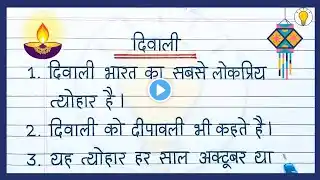 दिवाली
1. दिवाली भारत का सबसे लोकप्रिय
त्योहार है।
2. दिवाली को दीपावली भी कहते है।
3. यह त्योहार हर साल अक्टूबर या